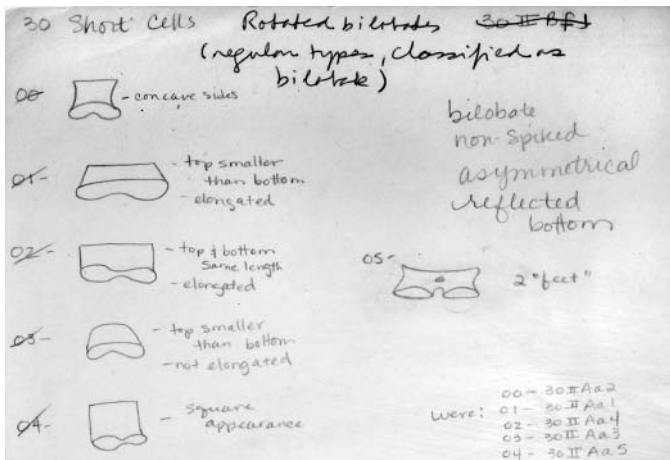 30 Short Cells Rotated bilobates 30 II Bf1
(regular types, classified as
bilobate)
00 - concave sides
01- - top smaller
than bottom
- elongated
02- - top & bottom
same length
- elongated
03- - top smaller
than bottom
- not elongated
04- - square
appearance
bilobate
non-spiked
asymmetrical
reflected
bottom
05- 2 "feet"
were:
00 - 30 II Aa2
01 - 30 II Aa1
02 - 30 II Aa4
03 - 30 II Aa3
04 - 30 II Aa5